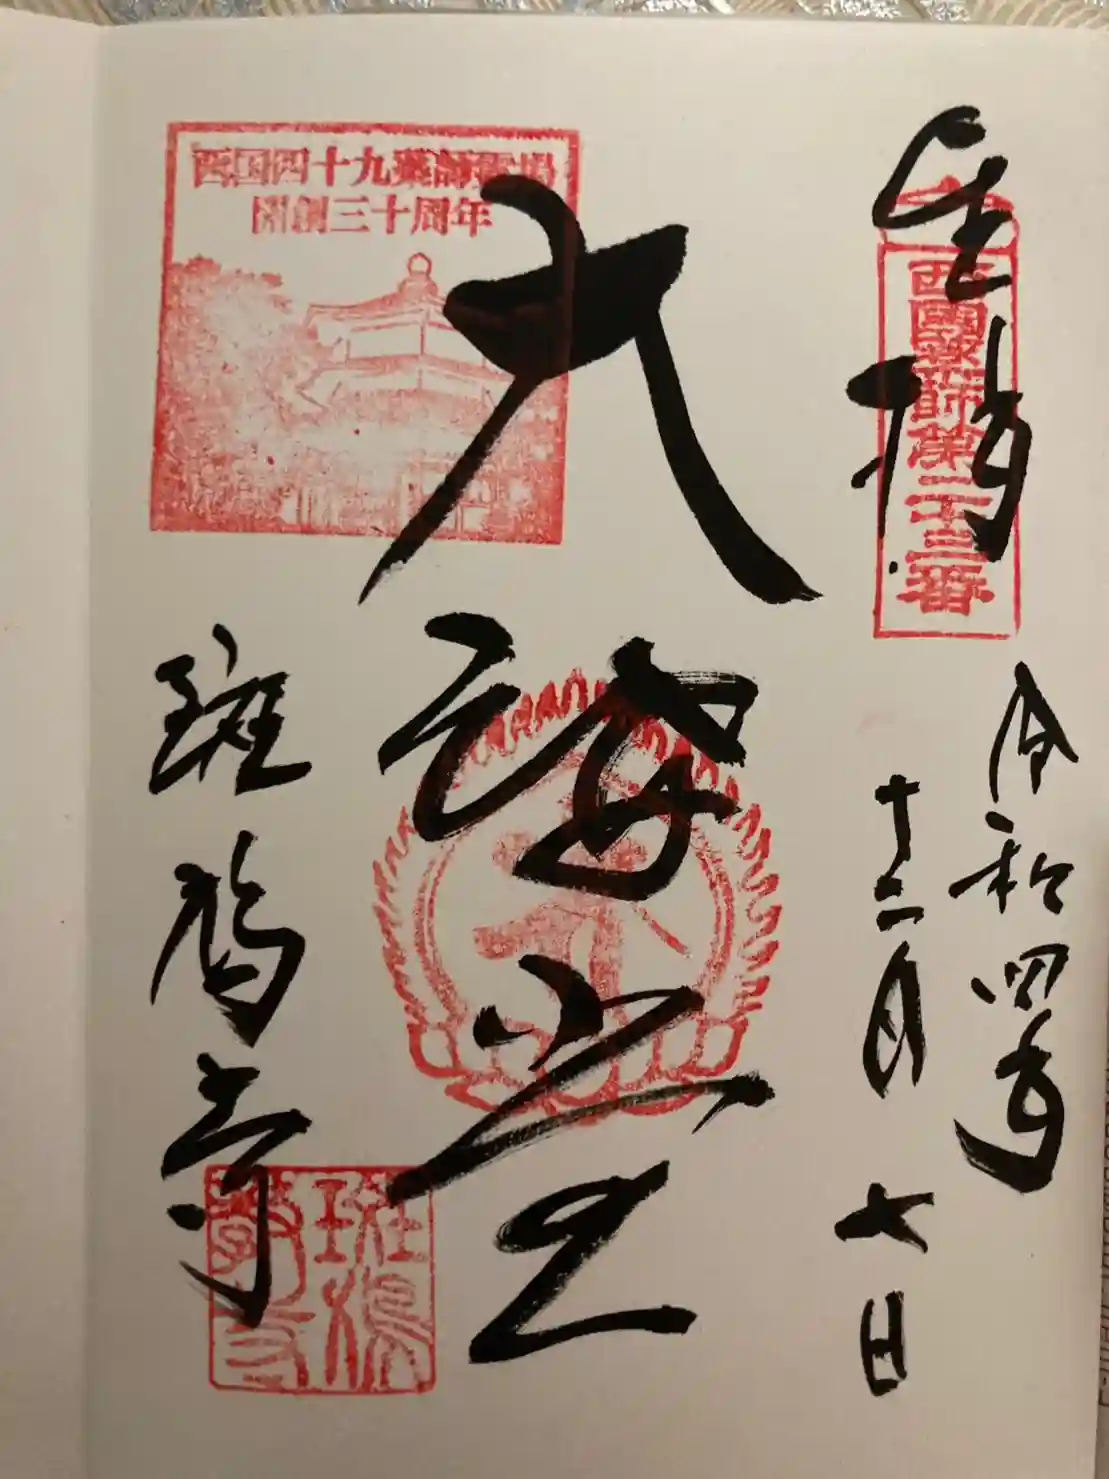 奉拝
西國薬師第二十三番
令和四年
十二月七日
大講堂
西国四十九薬師霊場
開創三十周年
斑鳩寺